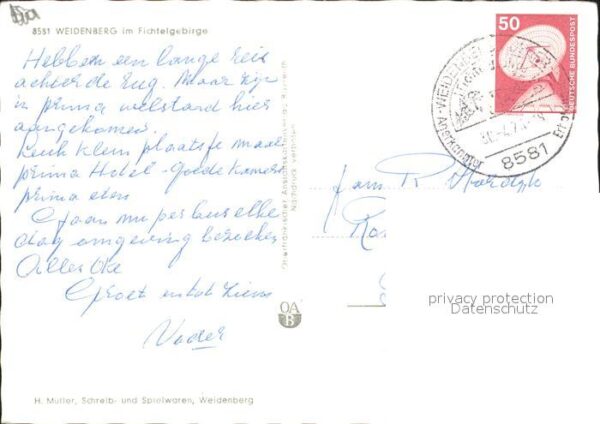 8581 WEIDENBERG im Fichtelgebirge
Hebben een lange reis
achter de rug. Maar zijn
in prima welstand hier
aangekomen.
Leuk klein plaatsje maar
prima Hotel - Goede kamers
prima eten
Gaan nu per bus elke
dag omgeving bezoeken
Alles Oke
Groet en tot ziens
Vader
H. Müller, Schreib- und Spielwaren, Weidenberg
Nachdruck verboten
OA
B
50
DEUTSCHE BUNDESPOST
WEIDENBERG
8581
Fam. R.
privacy protection
Datenschutz